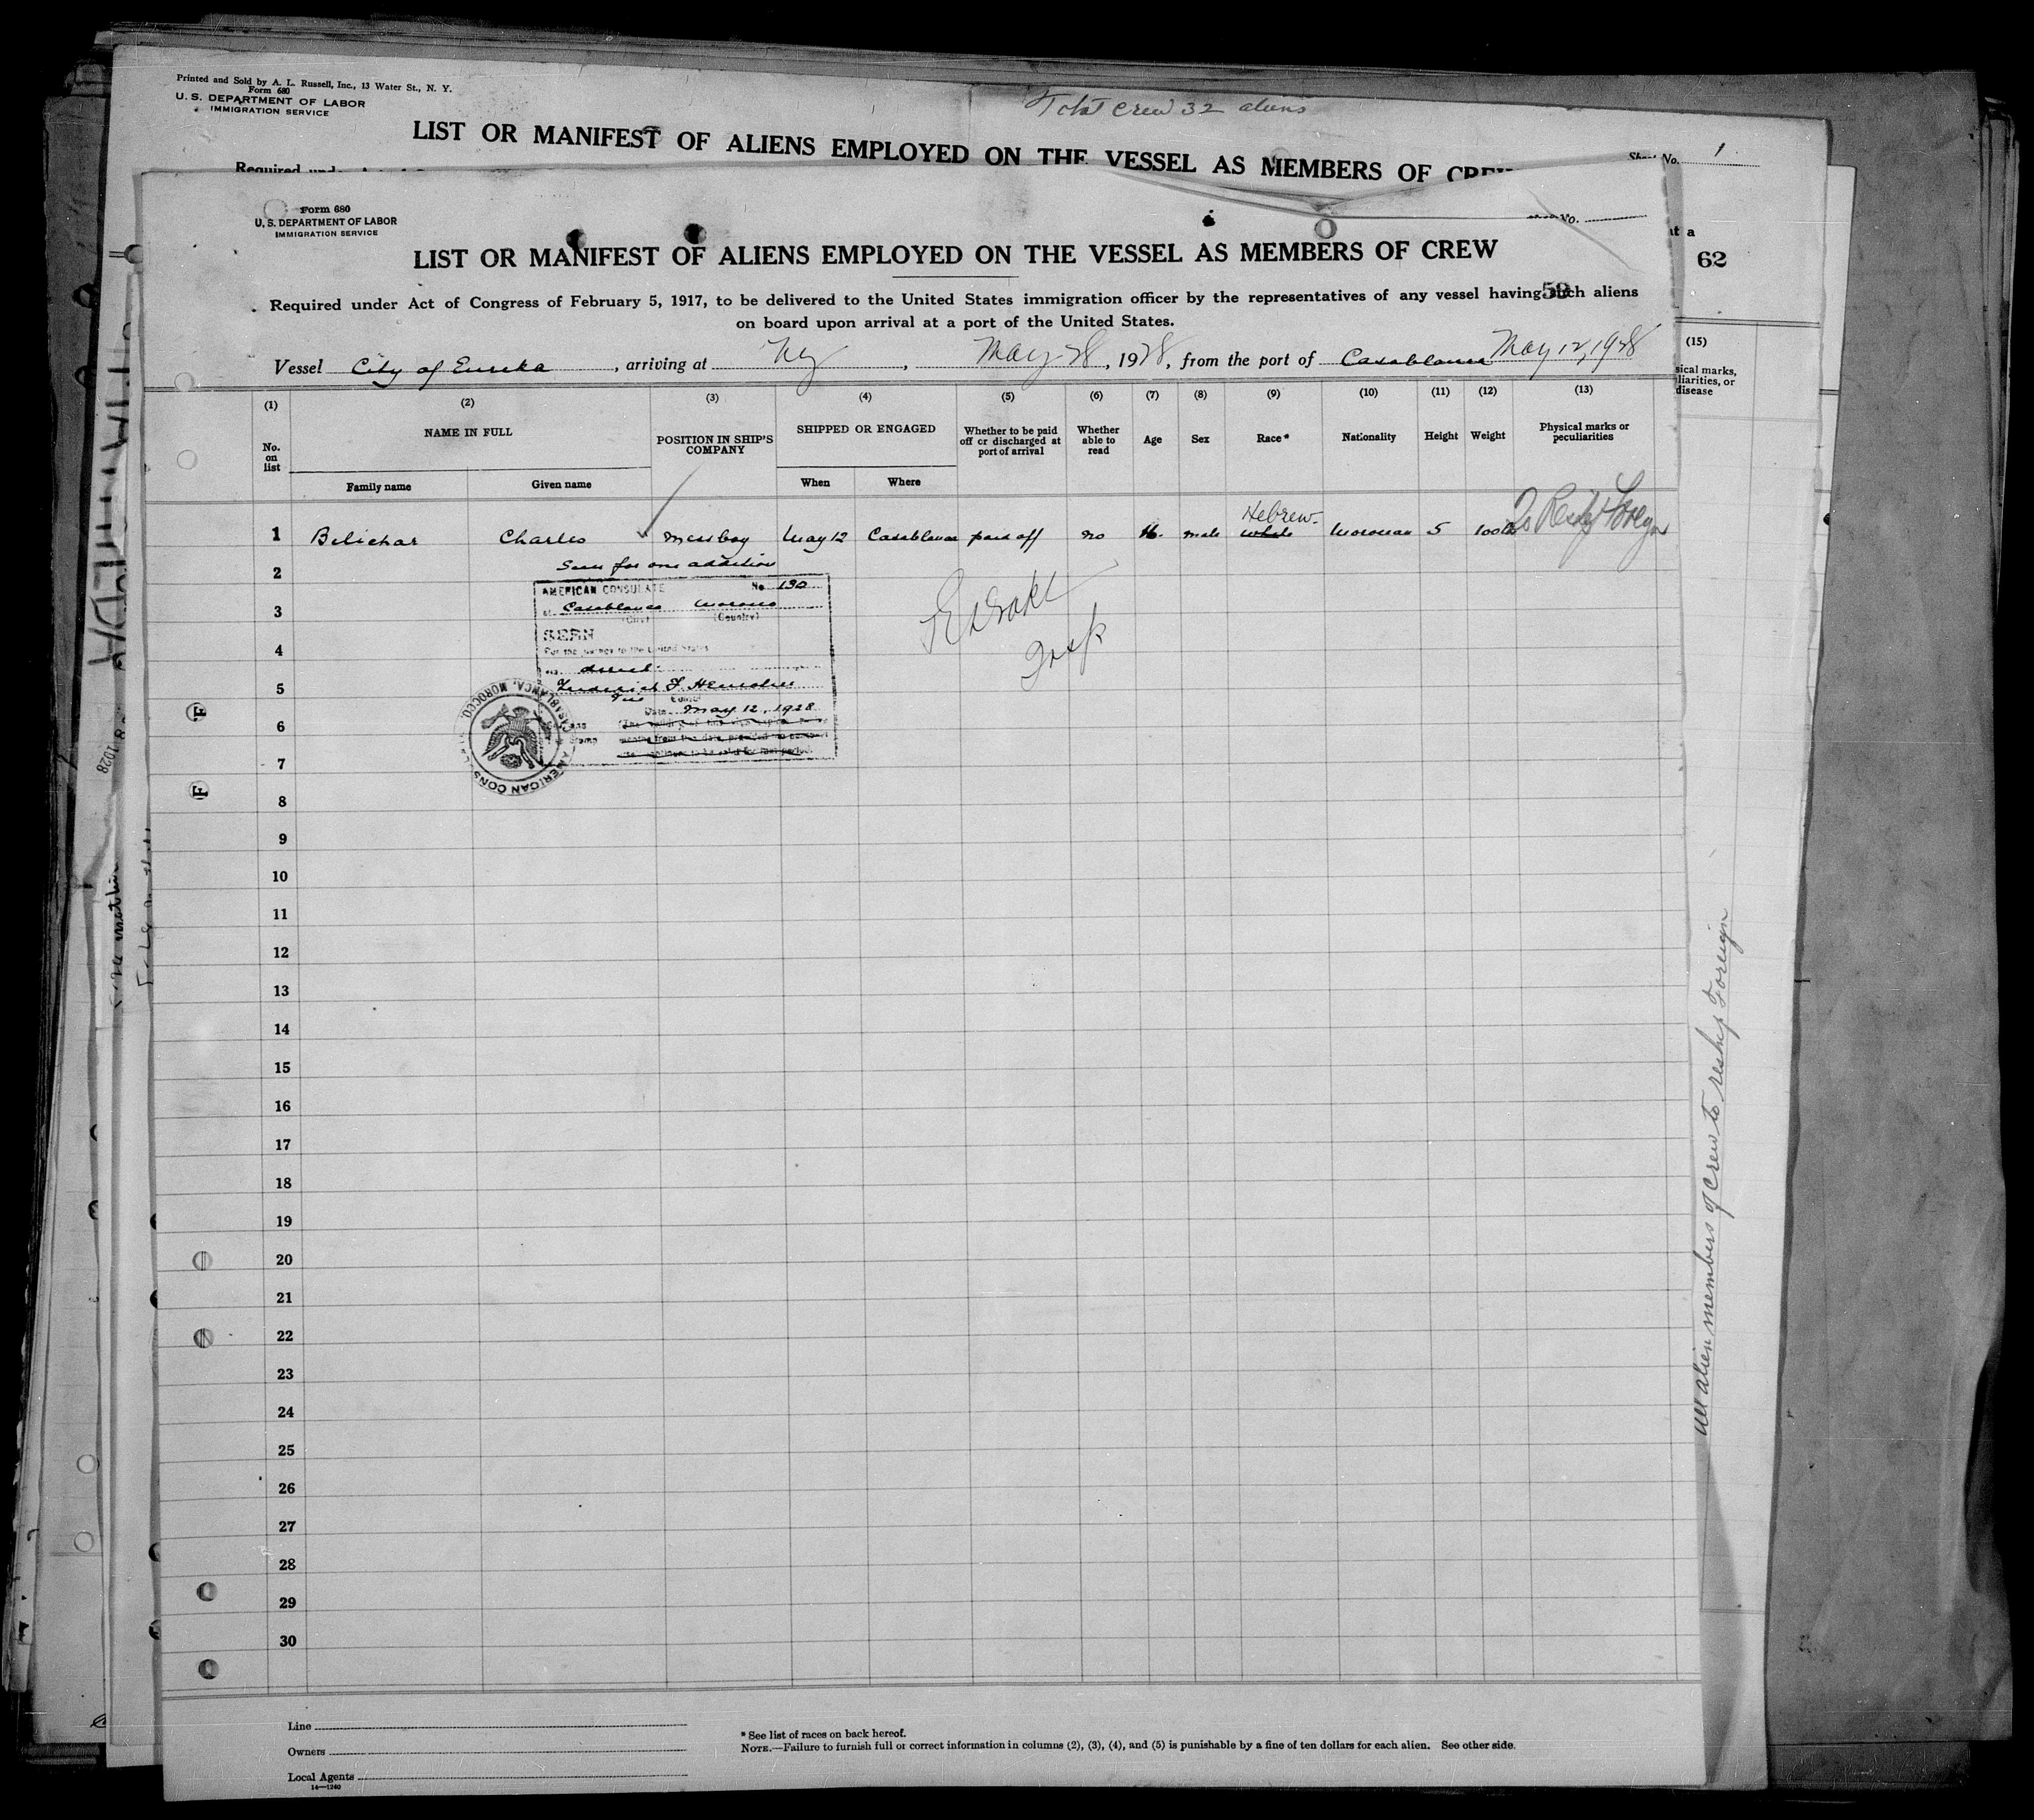 Printed and Sold by A. L. Russell, Inc., 13 Water St., N. Y.
Form 680
U. S. DEPARTMENT OF LABOR
IMMIGRATION SERVICE
Total crew 32 aliens
LIST OR MANIFEST OF ALIENS EMPLOYED ON THE VESSEL AS MEMBERS OF CREW
Sheet No. 1
Required under
Form 680
U. S. DEPARTMENT OF LABOR
IMMIGRATION SERVICE
No.
at a
62
LIST OR MANIFEST OF ALIENS EMPLOYED ON THE VESSEL AS MEMBERS OF CREW
59
Required under Act of Congress of February 5, 1917, to be delivered to the United States immigration officer by the representatives of any vessel having such aliens
on board upon arrival at a port of the United States.
Vessel City of Eureka, arriving at NY, May 28, 1928, from the port of Casablanca May 12, 1928
(15)
sical marks,
liarities, or
disease
(1) (2) (3) (4) (5) (6) (7) (8) (9) (10) (11) (12) (13)
No. on list
NAME IN FULL
Family name
Given name
POSITION IN SHIP'S COMPANY
SHIPPED OR ENGAGED
When
Where
Whether to be paid off or discharged at port of arrival
Whether able to read
Age
Sex
Race*
Nationality
Height
Weight
Physical marks or peculiarities
Hebrew
1 Belichar Charles messboy May 12 Casablanca paid off no 16 male white Moroccan 5 100
Seen for one addition
2
AMERICAN CONSULATE No. 190
3
at Casablanca Morocco
(City) (Country)
SEEN
4
For the journey to the United States
5
Date May 12, 1928
6
7
AMERICAN CONS CASABLANCA, MOROCCO.
8
9
10
11
12
13
14
15
16
17
18
19
20
21
22
23
24
25
26
27
28
29
30
All alien members of crew to reship Foreign
Line
Owners
Local Agents
14—1240
* See list of races on back hereof.
NOTE.—Failure to furnish full or correct information in columns (2), (3), (4), and (5) is punishable by a fine of ten dollars for each alien. See other side.